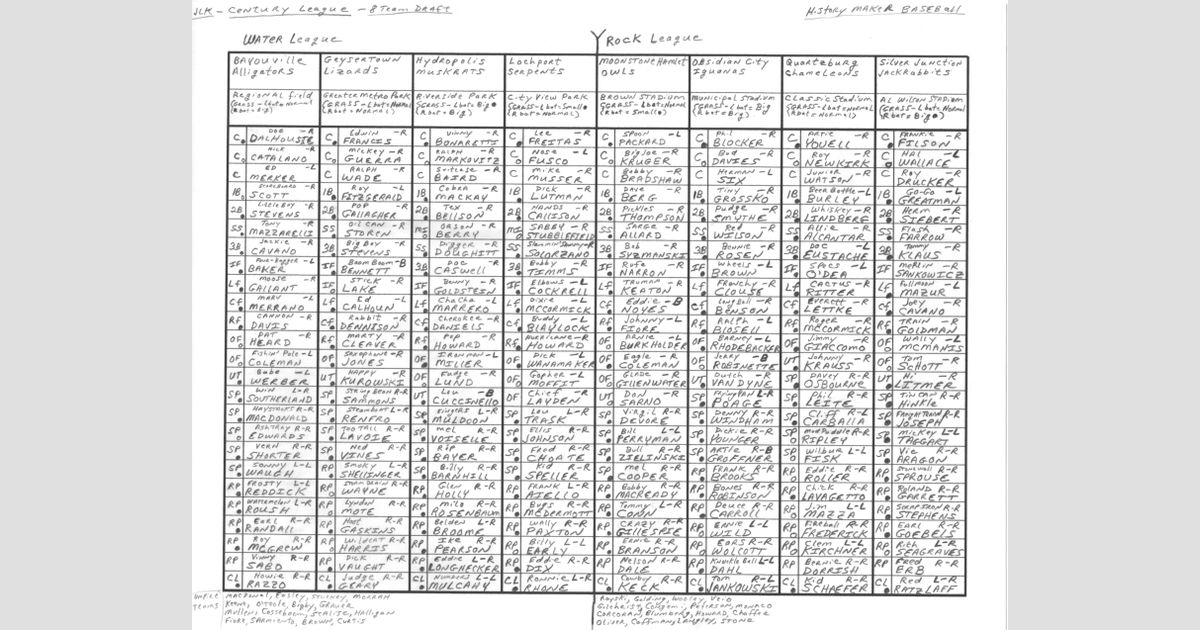 JLK - CENTURY LEAGUE - 8 TEAM DRAFT
HISTORY MAKER BASEBALL
WATER LEAGUE
ROCK LEAGUE
BAYOUVILLE Alligators
GEYSERTOWN Lizards
Hydropolis muskrats
Lockport Serpents
MOONSTONE Hamlet OWLS
Obsidian City Iguanas
Quartzburg Chameleons
Silver Junction JackRabbits
Regional Field
GREATER METRO PARK
Riverside Park
City View Park
BROWN STADIUM
municipal Stadium
Classic Stadium
AL WILSON STADIUM
C DOC -R DALHOUSIE
C Edwin -R FRANCIS
C Vinny -R BONARETTI
C Lee -R FREITAS
C SPOON -L PACKARD
C Phil -R BLOCKER
C ARTIE -R POWELL
C FRANKIE -R FILSON
C NICK -R CATALANO
C mickey -R GUERRA
C RALPH -R MARKOVITZ
C NOSE -L FUSCO
C BigJoe -R KRUGER
C Bud -R DAVIES
C Roy -R NEWKIRK
C HAL -L WALLACE
C ED -L MERKER
C RALPH -R WADE
C Suitcase -R BAIRD
C mike -R MUSSER
C Bobby -R BRADSHAW
C HERMAN -L SIX
C JUNIOR -R WATSON
C ROY -R DRUCKER
1B SCOTT
1B Roy -L FITZGERALD
1B Cobra -R MACKAY
1B DICK -R LUTMAN
1B DAVE -R BERG
1B TINY -R GROSSKO
1B Beer Bottle -L BURLEY
1B GO-GO -L GREATMAN
2B Little Boy -R STEVENS
2B POP -R GALLAGHER
2B TEX -R BELLSON
2B HANDS -R CALLISON
2B Pickles -R THOMPSON
2B Pudge -R SMYTHE
2B Whiskey -R LINDBERG
2B HERM -R SIEBERT
SS Tony -R MAZZARELLI
SS OIL CAN -R STOREN
ORSON -R BERRY
GABBY -R STUBBLEFIELD
SS SARGE -R ALLARD
SS Red -R WILSON
SS Allie -R ALCANTAR
SS Flash -R FARROW
3B Jackie -R CAVANO
3B Big Boy -R STEVENS
SS Digger -R DOUGHITT
SS SOLORZANO
3B Bob -R SYZMANSKI
3B Bennie -R ROSEN
3B DOC -L EUSTACHE
3B Tommy -R KLAUS
IF BAKER
IF Boom Boom -B BENNETT
3B DOC -R CASWELL
3B Bobby -R TIMMS
IF Rufe -R NARRON
IF Wheels -L BROWN
IF SPECS -L O'DEA
IF MERLIN -R SANKOWICZ
LF MOOSE -R GALLANT
IF STICK -R LAKE
IF Benny -R GOLDSTEIN
IF Elbows -L COCKRELL
LF TRUMAN -R KEATON
LF Frenchy -R CLOUSE
LF CACTUS -R RITTER
LF Fullmoon -L MAZUR
CF MARV -L MERRANO
LF Ed -L CALHOUN
LF ChaCha -L MARRERO
LF Dixie -L McCORMICK
CF Eddie -B NOYES
CF Long Ball -R BENSON
CF Everett -R LETTKE
CF Joey -R CAVANO
RF CANNON -R DAVIS
CF Rabbit -R DENNISON
CF CHEROKEE -R DANIELS
CF Buddy -L BLAYLOCK
RF Johnny -L FIORE
RF Ralph -L BIDSELL
RF Roger -R McCORMICK
RF TRAIN -R GOLDMAN
OF PAT -R HEARD
RF MARTY -R CLEAVER
RF Pop -R HOWARD
RF HURRICANE -R HOWARD
OF ARNIE -L BURKHOLDER
OF BARNEY -L RHODEBACKER
OF Jimmy -R GIACCOMO
OF WALLY -L MCMANIS
OF Fishin' Pole -L COLEMAN
OF Saxophone -R JONES
OF IRONMAN -L MILLER
OF DICK -L WANAMAKER
OF Eagle -R COLEMAN
OF JERRY -B ROBINETTE
UT Johnny -R KRAUSS
OF Tom -R SCHOTT
UT Babe -L WERBER
UT HAPPY -R KUROWSKI
OF Fudge -R LUND
OF Gopher -L MOFFIT
OF GLADE -R GILLENWATER
UT Dutch -R VAN DYNE
SP DAVEY R-R OSBOURNE
UT Hi -R LITMER
SP WIN L-R SOUTHERLAND
SP String Bean R-R SAMMONS
UT Lou -B CUCCINELLO
OF Chief -R LAYDEN
UT DON -R SARNO
SP L-R POAGE
SP Phil R-R LEITE
SP Tin Can R-R HINKLE
SP Haystacks R-R MACDONALD
SP Steamboat L-R RENFRO
SP Fingers L-R MULDOON
SP Lou L-R TRASK
SP Virgil R-R DEVORE
SP DENNY R-R WINDHAM
SP Cliff R-L CARBALLA
SP Freight Train R-R JOSEPH
SP Ashtray R-R EDWARDS
SP TOO TALL R-R LAVOIE
SP mel R-R VOISELLE
SP Ellis R-R JOHNSON
SP Bill L-L PERRYMAN
SP Dickie R-R YOUNGER
SP mud Puddle R-R RIPLEY
SP mickey L-L TAGGART
SP VERN R-R SHORTER
SP Ned R-R VINES
SP RIP R-R BAYER
SP FROD R-R CHOATE
SP Bull R-R ZIELINSKI
SP ARTIE R-B GROFFNER
SP Wilbur L-L FISK
SP Vic R-R ARAGON
SP SONNY L-L WAUGH
RP Smoky L-R SHELLINGER
SP Billy R-L BARNHILL
SP Kid R-R SPELLER
SP mel R-R COOPER
RP FRANK R-R BROOKS
SP Eddie R-R ROLLER
RP Stonewall R-R SPROUSE
RP FROSTY L-L REDDICK
RP R-R WAYNE
RP GLEN R-R HOLLY
RP FRANK L-R AIELLO
RP Bobby R-R MACREADY
RP Bones R-R ROBINSON
RP Chick R-R LAVAGETTO
RP ROLAND R-R GARRETT
RP Watermelon L-R ROUSH
RP Lyndon R-R MOTE
RP Philo R-R ROSENBAUM
RP Bugs R-R McDERMOTT
RP Tommy L-R CONN
RP Deuce R-R CARROLL
RP Jim L-L MAZZA
RP SCRAP IRON R-R STEPHENS
RP Earl R-R RANDALL
RP Host R-R GASKINS
RP Belden L-R BROOME
RP Wally R-R PAXTON
RP CRAZY R-R GILLESPIE
RP ERNIE L-L WILD
RP Fireball R-R FREDERICK
RP EARL R-R GOEBELS
RP Roy R-R McGREW
RP WILDCAT R-R HARRIS
RP IKE R-R PEARSON
RP Billy L-L EARLY
RP Ernie R-R BRANSON
RP EARS R-R WOLCOTT
RP Clem L-L KIRCHNER
RP Rick L-L SEAGRAVES
RP Vinny R-R SABO
RP DICK R-R VAUGHT
RP Eddie L-R LONGHECKER
RP Eddie R-R DIX
RP NELSON R-R DALE
RP Knuckle Ball L-L DAHL
RP Bernie R-R DORRISH
RP Fred R-R ERB
CL Howie R-R RAZZO
CL Judge R-R GEARY
CL L-L MULCAHY
CL RONNIE L-R RHONE
CL Cowboy R-R KECK
CL Tom R-L JANKOWSKI
CL Kid R-R SCHAEFER
CL Red L-R RATZLAFF
UMPIRE TEAMS
MACDONAL, Easley, STUCKEY, MORRAH
Keens, O'TOOLE, Bigby, GRAVER
Mullen, Cosseboom, SCALISE, Halligan
Fiore, SARMIENTO, BROWN, CURTIS
Royski, Golding, Wooley, Veio
Gilchrist, Coligemi, PETERSON, MONACO
CORCORAN, Blumberg, HOWARD, Chaffee
OLIVER, Coffman, Langley, STONE